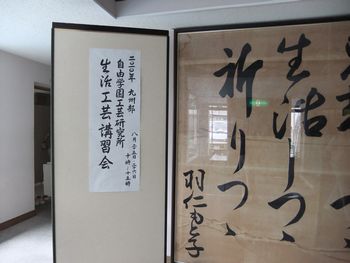 二〇二〇年 九州部
自由学園工芸研究所
生活工芸講習会
八月二五日 二六日
十時ー十五時
生活しつゝ
祈りつゝ
羽仁もと子